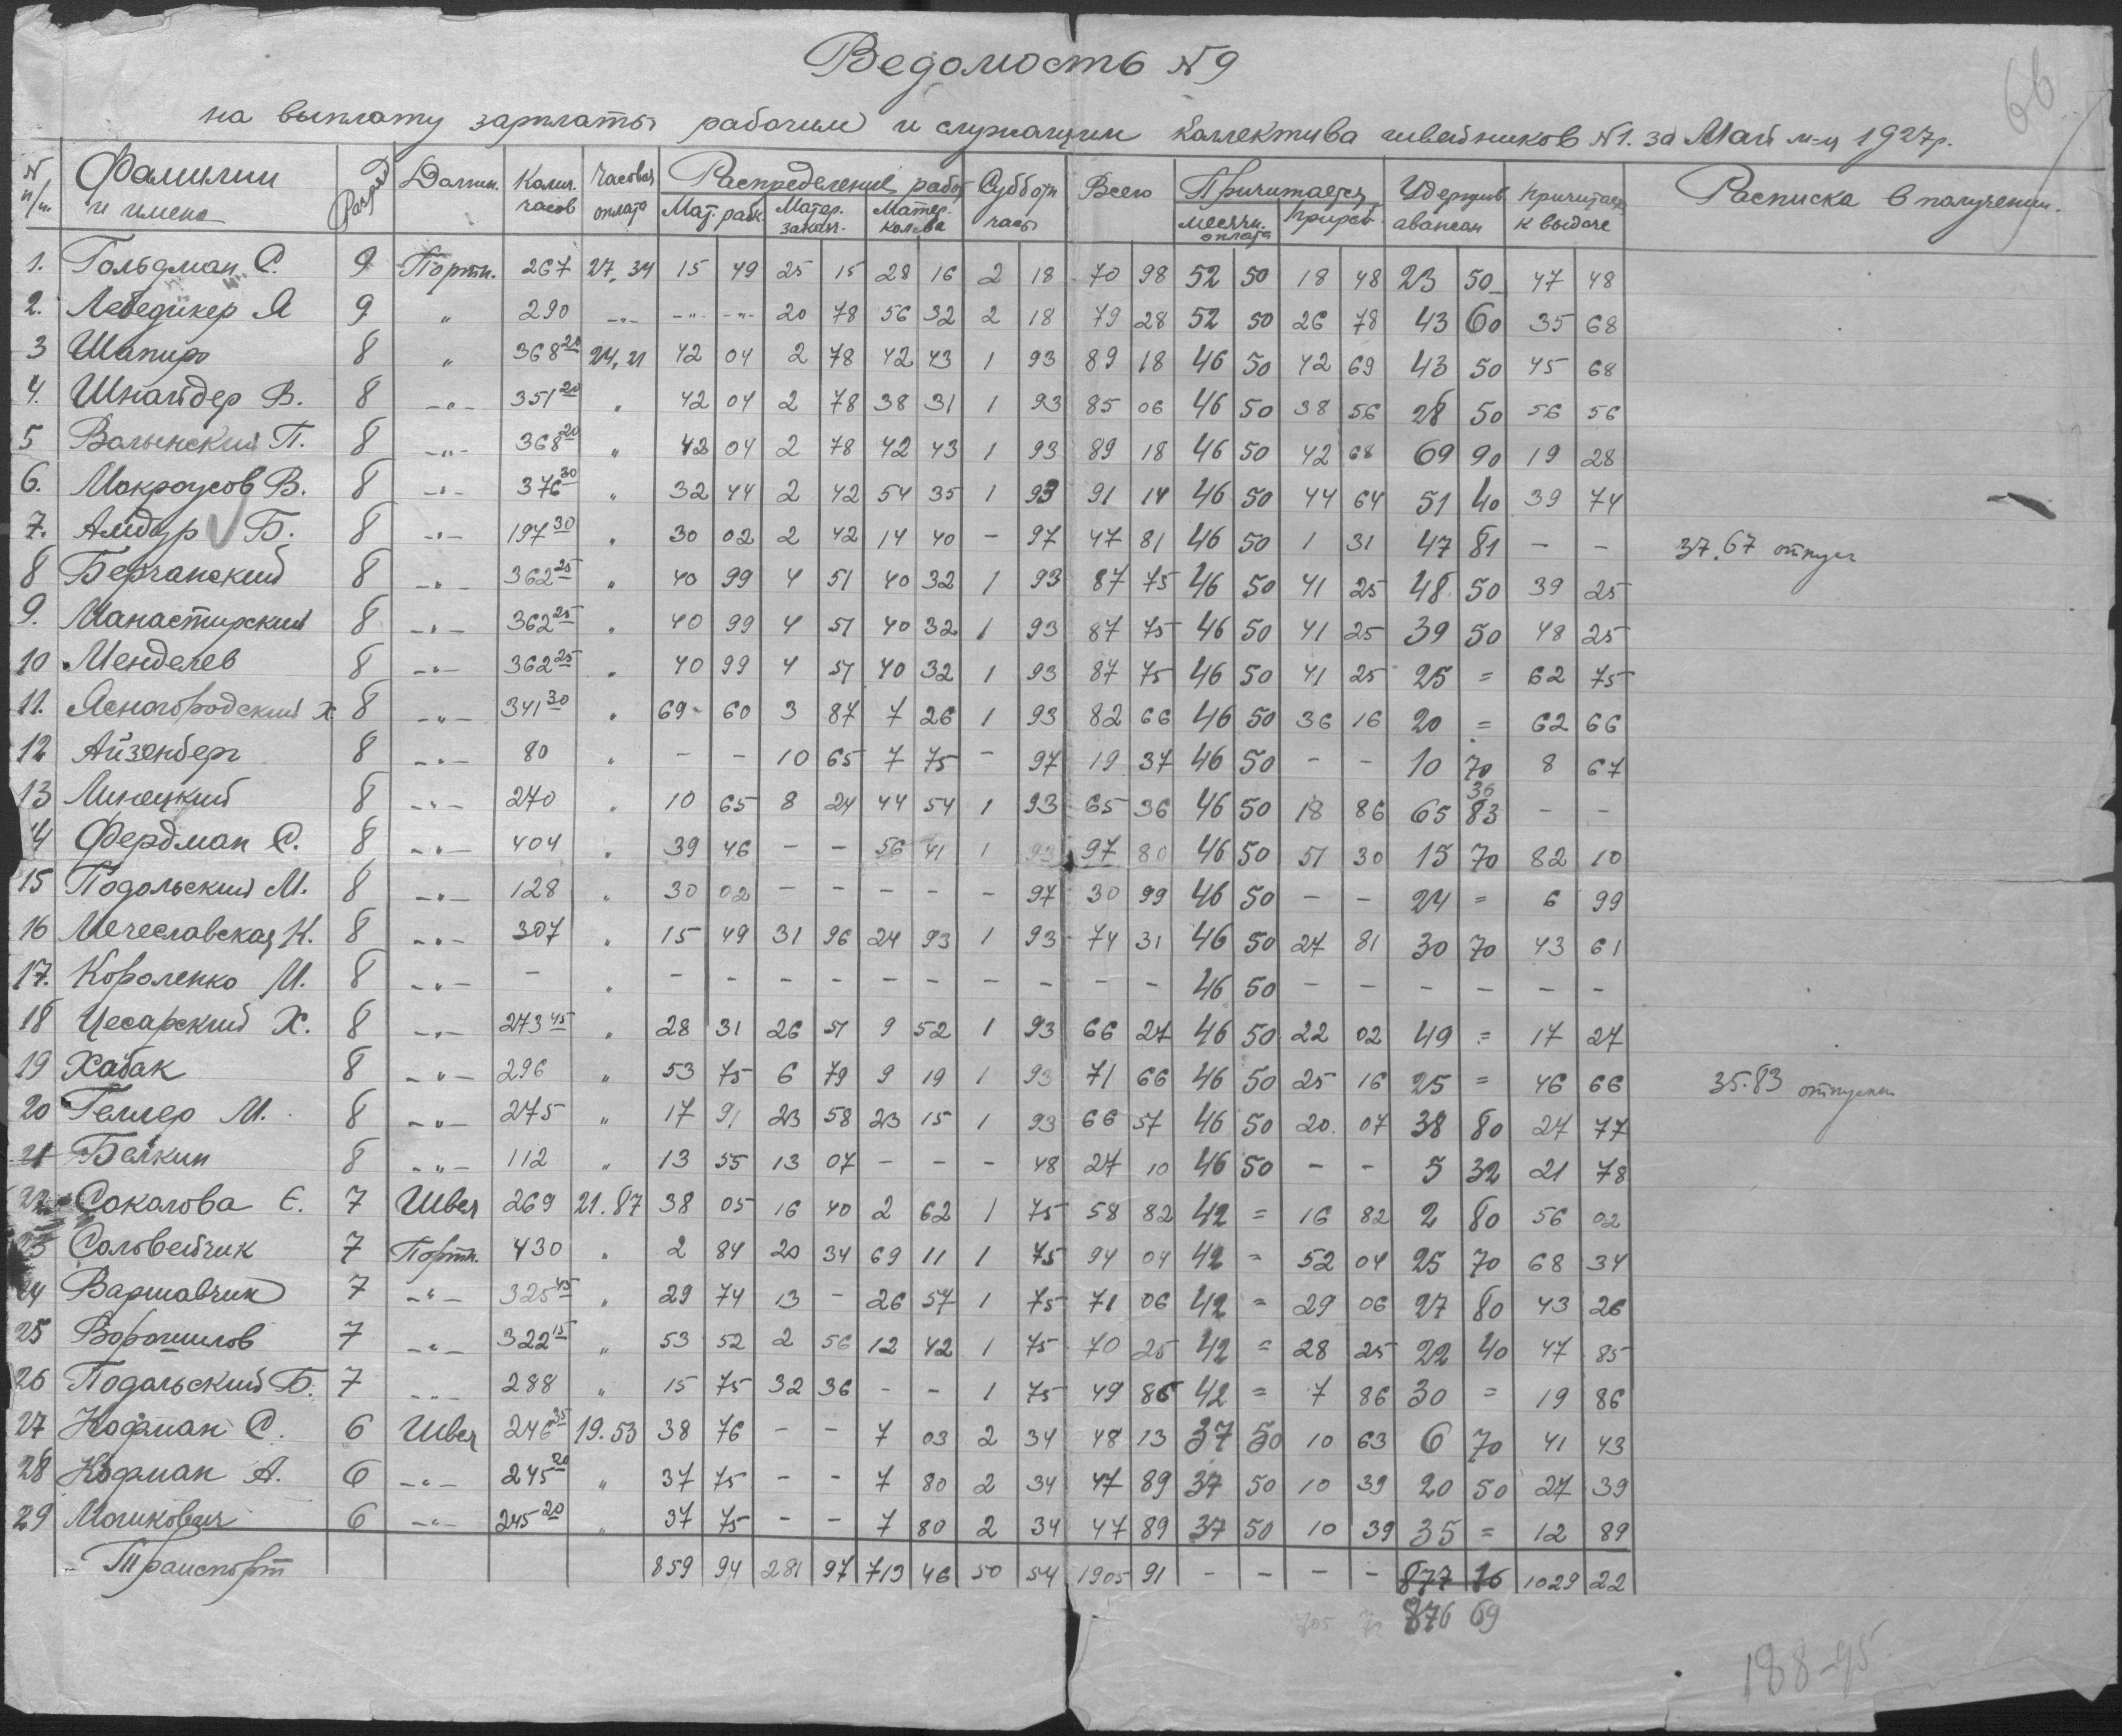 66
Ведомость №9
на выплату зарплаты рабочим и служащим Коллектива швейников №1. за Май м-ц 1927г.
№ п/п. Фамилии и имена Разряд Должн. Колич. часов Часовая оплата Распределение работ Мат. рабк. Матер. заказч. Матер. кол-ва Субботн часы Всего Причитается месячн. оплата прираб. Удержив авансам Причитается к выдаче Расписка в получении.
1. Гольдман С. 9 Портн. 267 27,34 15 49 25 15 28 16 2 18 70 98 52 50 18 48 23 50 47 48
2. Лебедикер Я 9 " 290 -"- -"- -"- 20 78 56 32 2 18 79 28 52 50 26 78 43 60 35 68
3 Шапиро 8 " 368 20 24,21 42 04 2 78 42 43 1 93 89 18 46 50 42 69 43 50 45 68
4. Шнайдер В. 8 -"- 351 20 " 42 04 2 78 38 31 1 93 85 06 46 50 38 56 28 50 56 56
5 Волынский П. 8 -"- 368 20 " 42 04 2 78 42 43 1 93 89 18 46 50 42 68 69 90 19 28
6. Мокроусов В. 8 -"- 376 30 " 32 44 2 42 54 35 1 93 91 14 46 50 44 64 51 40 39 74
7. Амдур Б. 8 -"- 197 30 " 30 02 2 42 14 40 - 97 47 81 46 50 1 31 47 81 - - 37.67 отпуск
8 Берчанский 8 -"- 362 25 " 40 99 4 51 40 32 1 93 87 75 46 50 41 25 48 50 39 25
9. Манастирский 8 -"- 362 25 " 40 99 4 51 40 32 1 93 87 75 46 50 41 25 39 50 48 25
10 Менделев 8 -"- 362 25 " 40 99 4 51 40 32 1 93 87 75 46 50 41 25 25 = 62 75
11. Ясногородский Х 8 -"- 341 30 " 69 60 3 87 7 26 1 93 82 66 46 50 36 16 20 = 62 66
12 Айзенберг 8 -"- 80 " - - 10 65 7 75 - 97 19 37 46 50 - - 10 70 8 67
13 Линецкий 8 -"- 270 " 10 65 8 24 44 54 1 93 65 36 46 50 18 86 65 36 83 - -
14 Фердман С. 8 -"- 404 " 39 46 - - 56 41 1 93 97 80 46 50 51 30 15 70 82 10
15 Подольский М. 8 -"- 128 " 30 02 - - - - - 97 30 99 46 50 - - 24 = 6 99
16 Мечеславская К. 8 -"- 307 " 15 49 31 96 24 93 1 93 74 31 46 50 27 81 30 70 43 61
17. Короленко М. 8 -"- - " - - - - - - - - - - 46 50 - - - - - -
18 Цесарский Х. 8 -"- 273 45 " 28 31 26 51 9 52 1 93 66 27 46 50 22 02 49 = 17 27
19 Хабак 8 -"- 296 " 53 75 6 79 9 19 1 93 71 66 46 50 25 16 25 = 46 66 35.83 отпускн
20 Геллер М. 8 -"- 275 " 17 91 23 58 23 15 1 93 66 57 46 50 20 07 38 80 27 77
21 Белкин 8 -"- 112 " 13 55 13 07 - - - 48 27 10 46 50 - - 5 32 21 78
22 Соколова Е. 7 Швея 269 21.87 38 05 16 40 2 62 1 75 58 82 42 = 16 82 2 80 56 02
23 Соловейчик 7 Портн. 430 " 2 84 20 34 69 11 1 75 94 04 42 = 52 04 25 70 68 34
24 Варшавчик 7 -"- 325 45 " 29 74 13 - 26 57 1 75 71 06 42 = 29 06 27 80 43 26
25 Ворошилов 7 -"- 322 15 " 53 52 2 56 12 42 1 75 70 25 42 = 28 25 22 40 47 85
26 Подольский Б. 7 -"- 288 " 15 75 32 36 - - 1 75 49 86 42 = 7 86 30 = 19 86
27 Кофман С. 6 Швея 246 35 19.53 38 76 - - 7 03 2 34 48 13 37 50 10 63 6 70 41 43
28 Кофман А. 6 -"- 245 20 " 37 75 - - 7 80 2 34 47 89 37 50 10 39 20 50 27 39
29 Мошкович 6 -"- 245 20 " 37 75 - - 7 80 2 34 47 89 37 50 10 39 35 = 12 89
Транспорт 859 94 281 97 713 46 50 54 1905 91 - - - - 877 16 1029 22
876 69
188-95